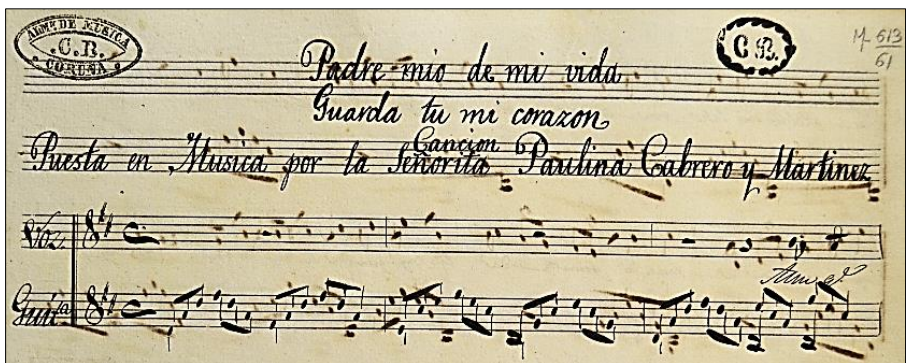 ALMN DE MUSICA
C.R.
CORUÑA
C R.
M-613
61
Padre mio de mi vida
Guarda tu mi corazon
Cancion
Puesta en Musica por la Señorita Paulina Cabrero y Martinez
Voz
Guita